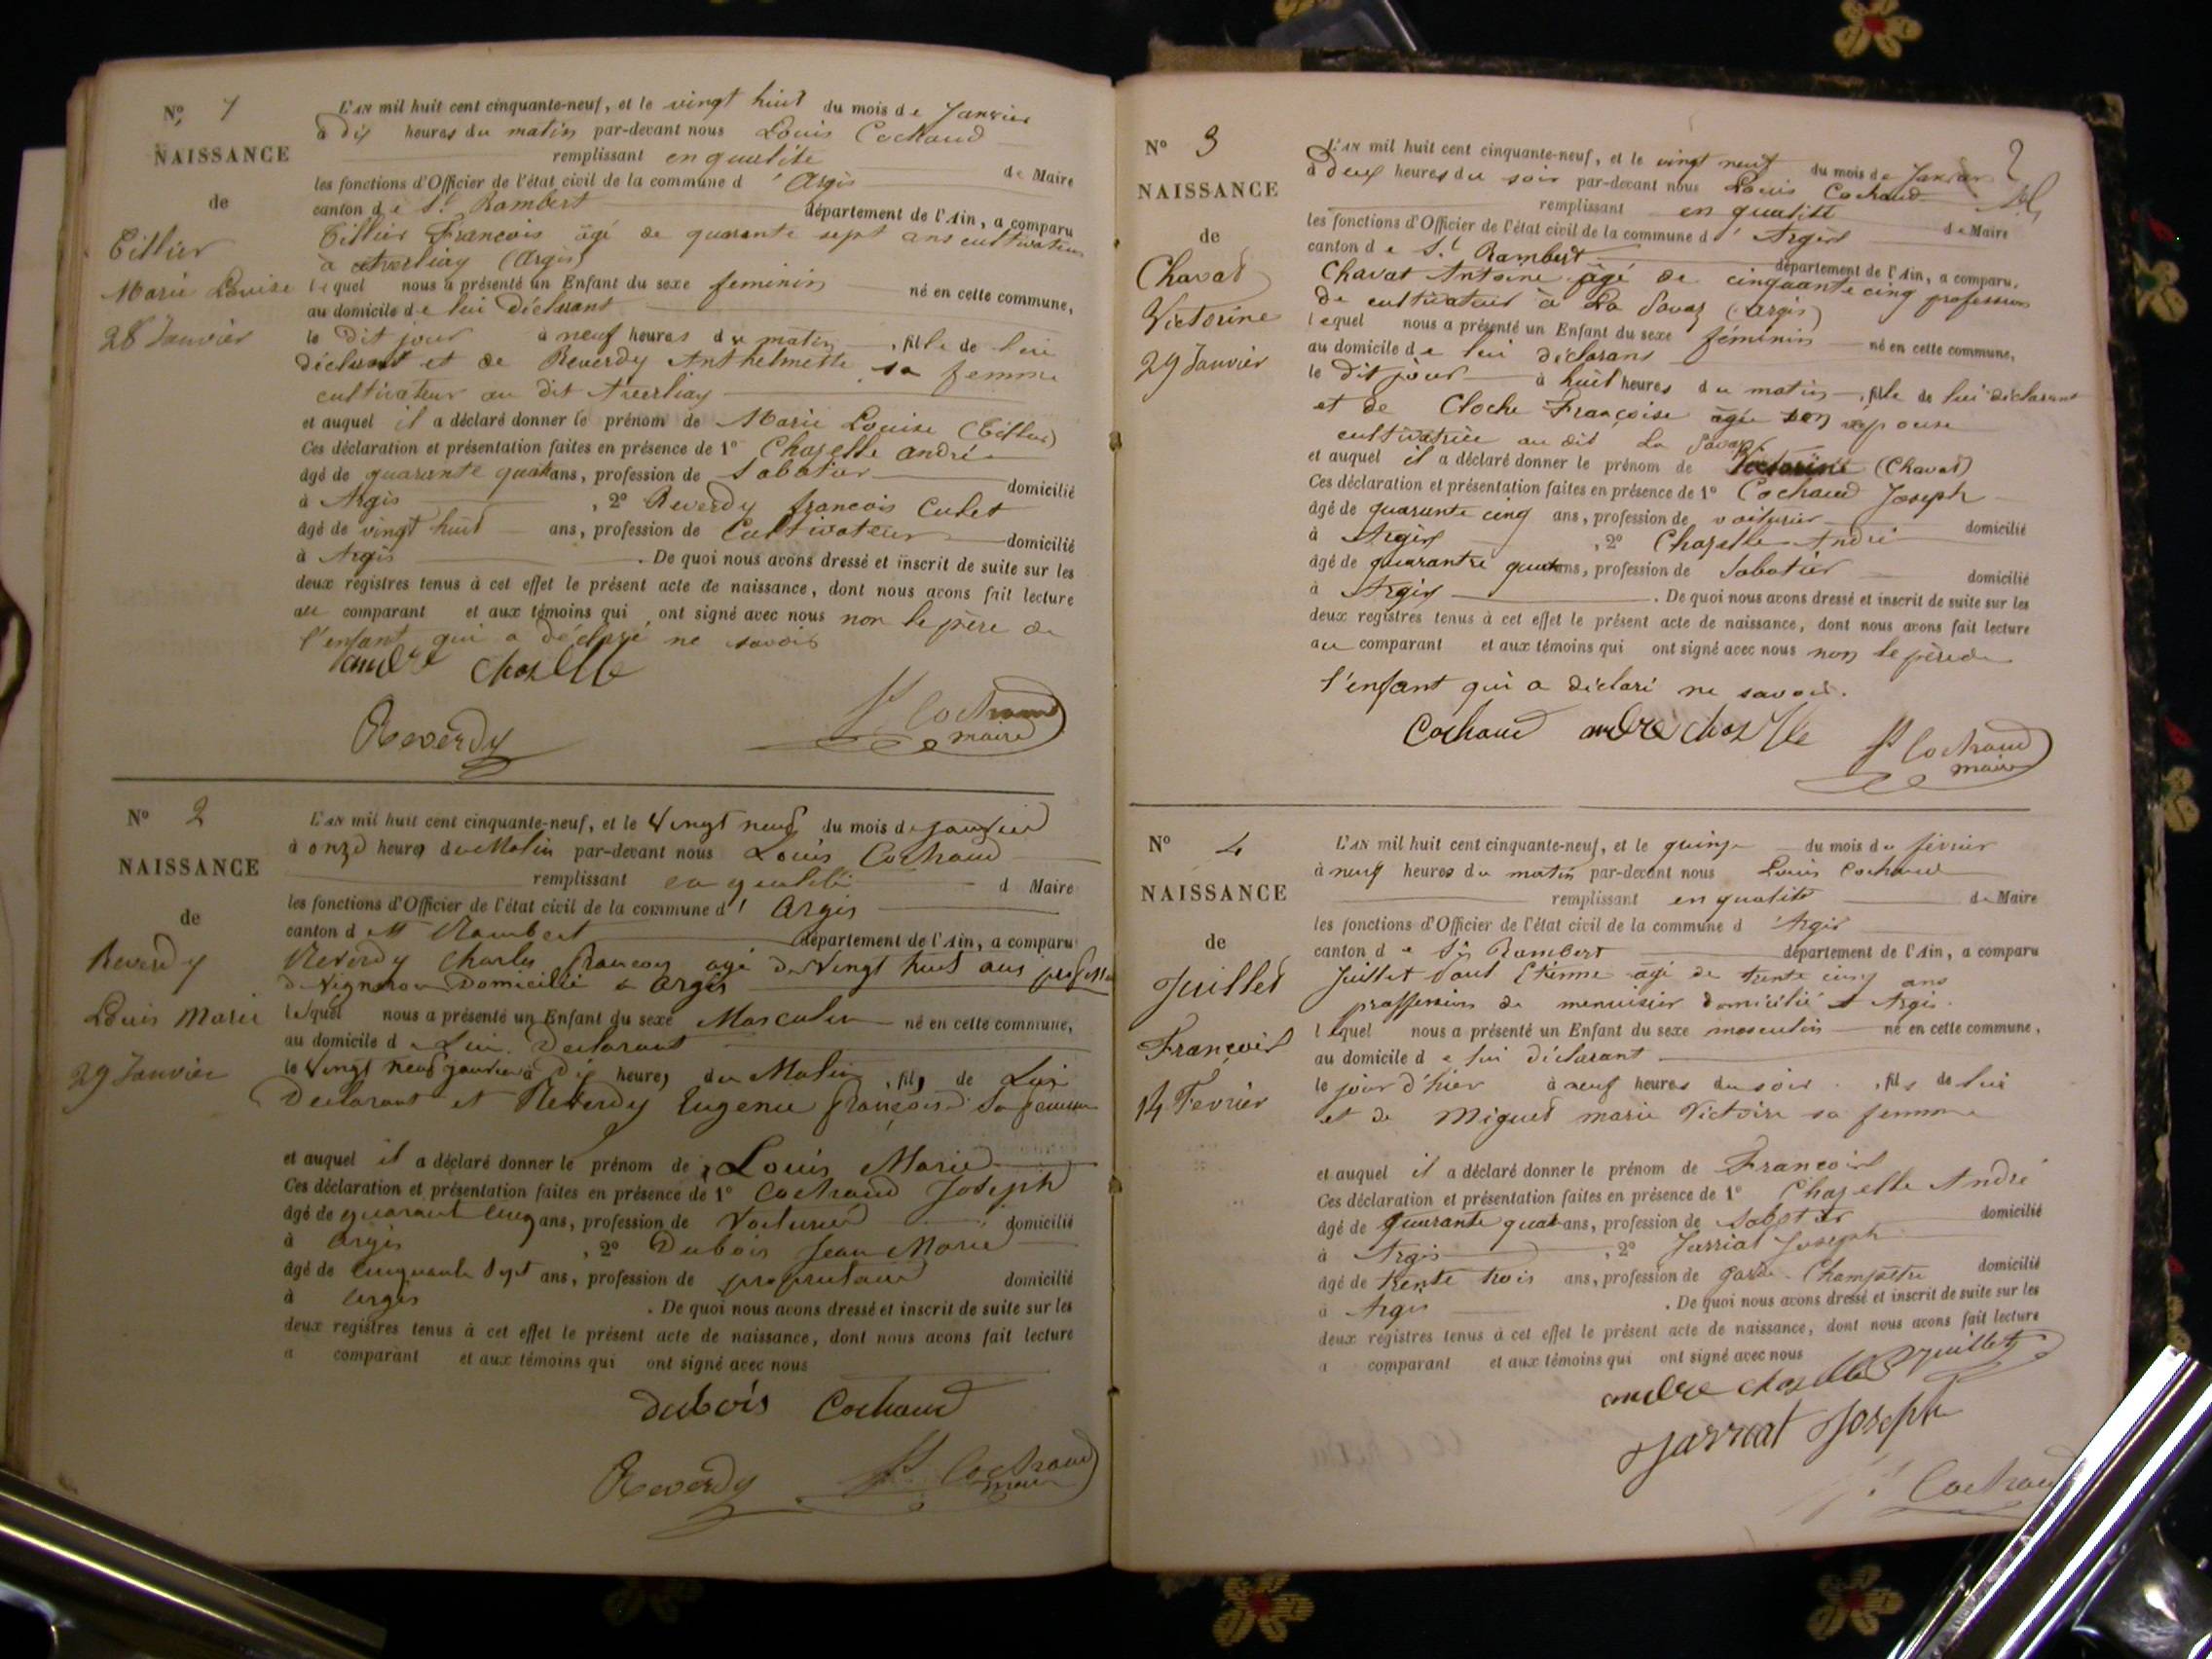 N° 1
NAISSANCE
de
Tillier
Marie Louise
28 Janvier
L'AN mil huit cent cinquante-neuf, et le vingt huit du mois de Janvier
à dix heures du matin par-devant nous Louis Cochaud
remplissant en qualité de Maire
les fonctions d'Officier de l'état civil de la commune d'Argis
canton de St Rambert département de l'Ain, a comparu
Tillier François âgé de quarante sept ans cultivateur
à (Argis)
lequel nous a présenté un Enfant du sexe feminin né en cette commune,
au domicile de lui déclarant
le dit jour à neuf heures du matin, fille de lui
déclarant et de Reverdy Anthelmette sa femme
cultivateur au dit
et auquel il a déclaré donner le prénom de Marie Louise (Tillier)
Ces déclaration et présentation faites en présence de 1° Chazelle andré
âgé de quarante quatre ans, profession de Sabotier domicilié
à Argis, 2° Reverdy francois Cadet
âgé de vingt huit ans, profession de Cultivateur domicilié
à Argis. De quoi nous avons dressé et inscrit de suite sur les
deux registres tenus à cet effet le présent acte de naissance, dont nous avons fait lecture
au comparant et aux témoins qui ont signé avec nous non le père de
l'enfant qui a déclaré ne savoir
andré chazelle
Reverdy
Ls Cochaud
maire
N° 2
NAISSANCE
de
Reverdy
Louis Marie
29 Janvier
L'AN mil huit cent cinquante-neuf, et le Vingt neuf du mois de janvier
à onze heures du Matin par-devant nous Louis Cochaud
remplissant en qualité d Maire
les fonctions d'Officier de l'état civil de la commune d' Argis
canton d St Rambert département de l'Ain, a comparu
Reverdy Charles François agé de Vingt huit ans profession
de Vigneron Domicilié à Argis
lequel nous a présenté un Enfant du sexe Masculin né en cette commune,
au domicile de Lui Déclarant
le Vingt neuf janvier à Dix heures du Matin, fils de Lui
Declarant et Reverdy Eugenie françoise Sa femme
et auquel il a déclaré donner le prénom de Louis Marie
Ces déclaration et présentation faites en présence de 1° Cochaud Joseph
âgé de quarante cinq ans, profession de Voiturier domicilié
à Argis, 2° Dubois Jean Marie
âgé de cinquante Sept ans, profession de propriétaire domicilié
à Argis. De quoi nous avons dressé et inscrit de suite sur les
deux registres tenus à cet effet le présent acte de naissance, dont nous avons fait lecture
a comparant et aux témoins qui ont signé avec nous
dubois Cochaud
Reverdy Ls Cochaud
maire
2
N° 3
NAISSANCE
de
Chavat
Victorine
29 Janvier
L'AN mil huit cent cinquante-neuf, et le vingt neuf du mois de Janvier
à deux heures du soir par-devant nous Louis Cochaud
remplissant en qualité de Maire
les fonctions d'Officier de l'état civil de la commune d' Argis
canton de St Rambert département de l'Ain, a comparu.
Chavat Antoine âgé de cinquante cinq profession
de cultivateur à La (Argis)
lequel nous a présenté un Enfant du sexe féminin né en cette commune,
au domicile de lui déclarant
le dit jour à huit heures du matin, fille de lui déclarant
et de Cloche Françoise âgée son épouse
cultivatrice au dit La
et auquel il a déclaré donner le prénom de Victorine (Chavat)
Ces déclaration et présentation faites en présence de 1° Cochaud Joseph
âgé de quarante cinq ans, profession de voiturier domicilié
à Argis, 2° Chazelle André
âgé de quarantre quatre ans, profession de Sabotier domicilié
à Argis. De quoi nous avons dressé et inscrit de suite sur les
deux registres tenus à cet effet le présent acte de naissance, dont nous avons fait lecture
au comparant et aux témoins qui ont signé avec nous non le père de
l'enfant qui a déclaré ne savoir.
Cochaud andré chazelle Ls Cochaud
maire
N° 4
NAISSANCE
de
Juillet
François
14 Fevrier
L'AN mil huit cent cinquante-neuf, et le quinze du mois de février
à neuf heures du matin par-devant nous Louis Cochaud
remplissant en qualité de Maire
les fonctions d'Officier de l'état civil de la commune d'Argis
canton de St Rambert département de l'Ain, a comparu
Juillet Paul Etienne âgé de trente cinq ans
proffession de menuisier domicilié à Argis.
lequel nous a présenté un Enfant du sexe masculin né en cette commune,
au domicile de lui déclarant
le jour d'hier à neuf heures du soir, fils de lui
et de Miguet marie Victoire sa femme
et auquel il a déclaré donner le prénom de François
Ces déclaration et présentation faites en présence de 1° Chazelle André
âgé de quarante quatre ans, profession de Sabotier domicilié
à Argis, 2° Jarriat Joseph
âgé de trente trois ans, profession de garde-Champêtre domicilié
à Argis. De quoi nous avons dressé et inscrit de suite sur les
deux registres tenus à cet effet le présent acte de naissance, dont nous avons fait lecture
a comparant et aux témoins qui ont signé avec nous
andre chazelle P Juillet
Jarriat Joseph
Ls Cochaud